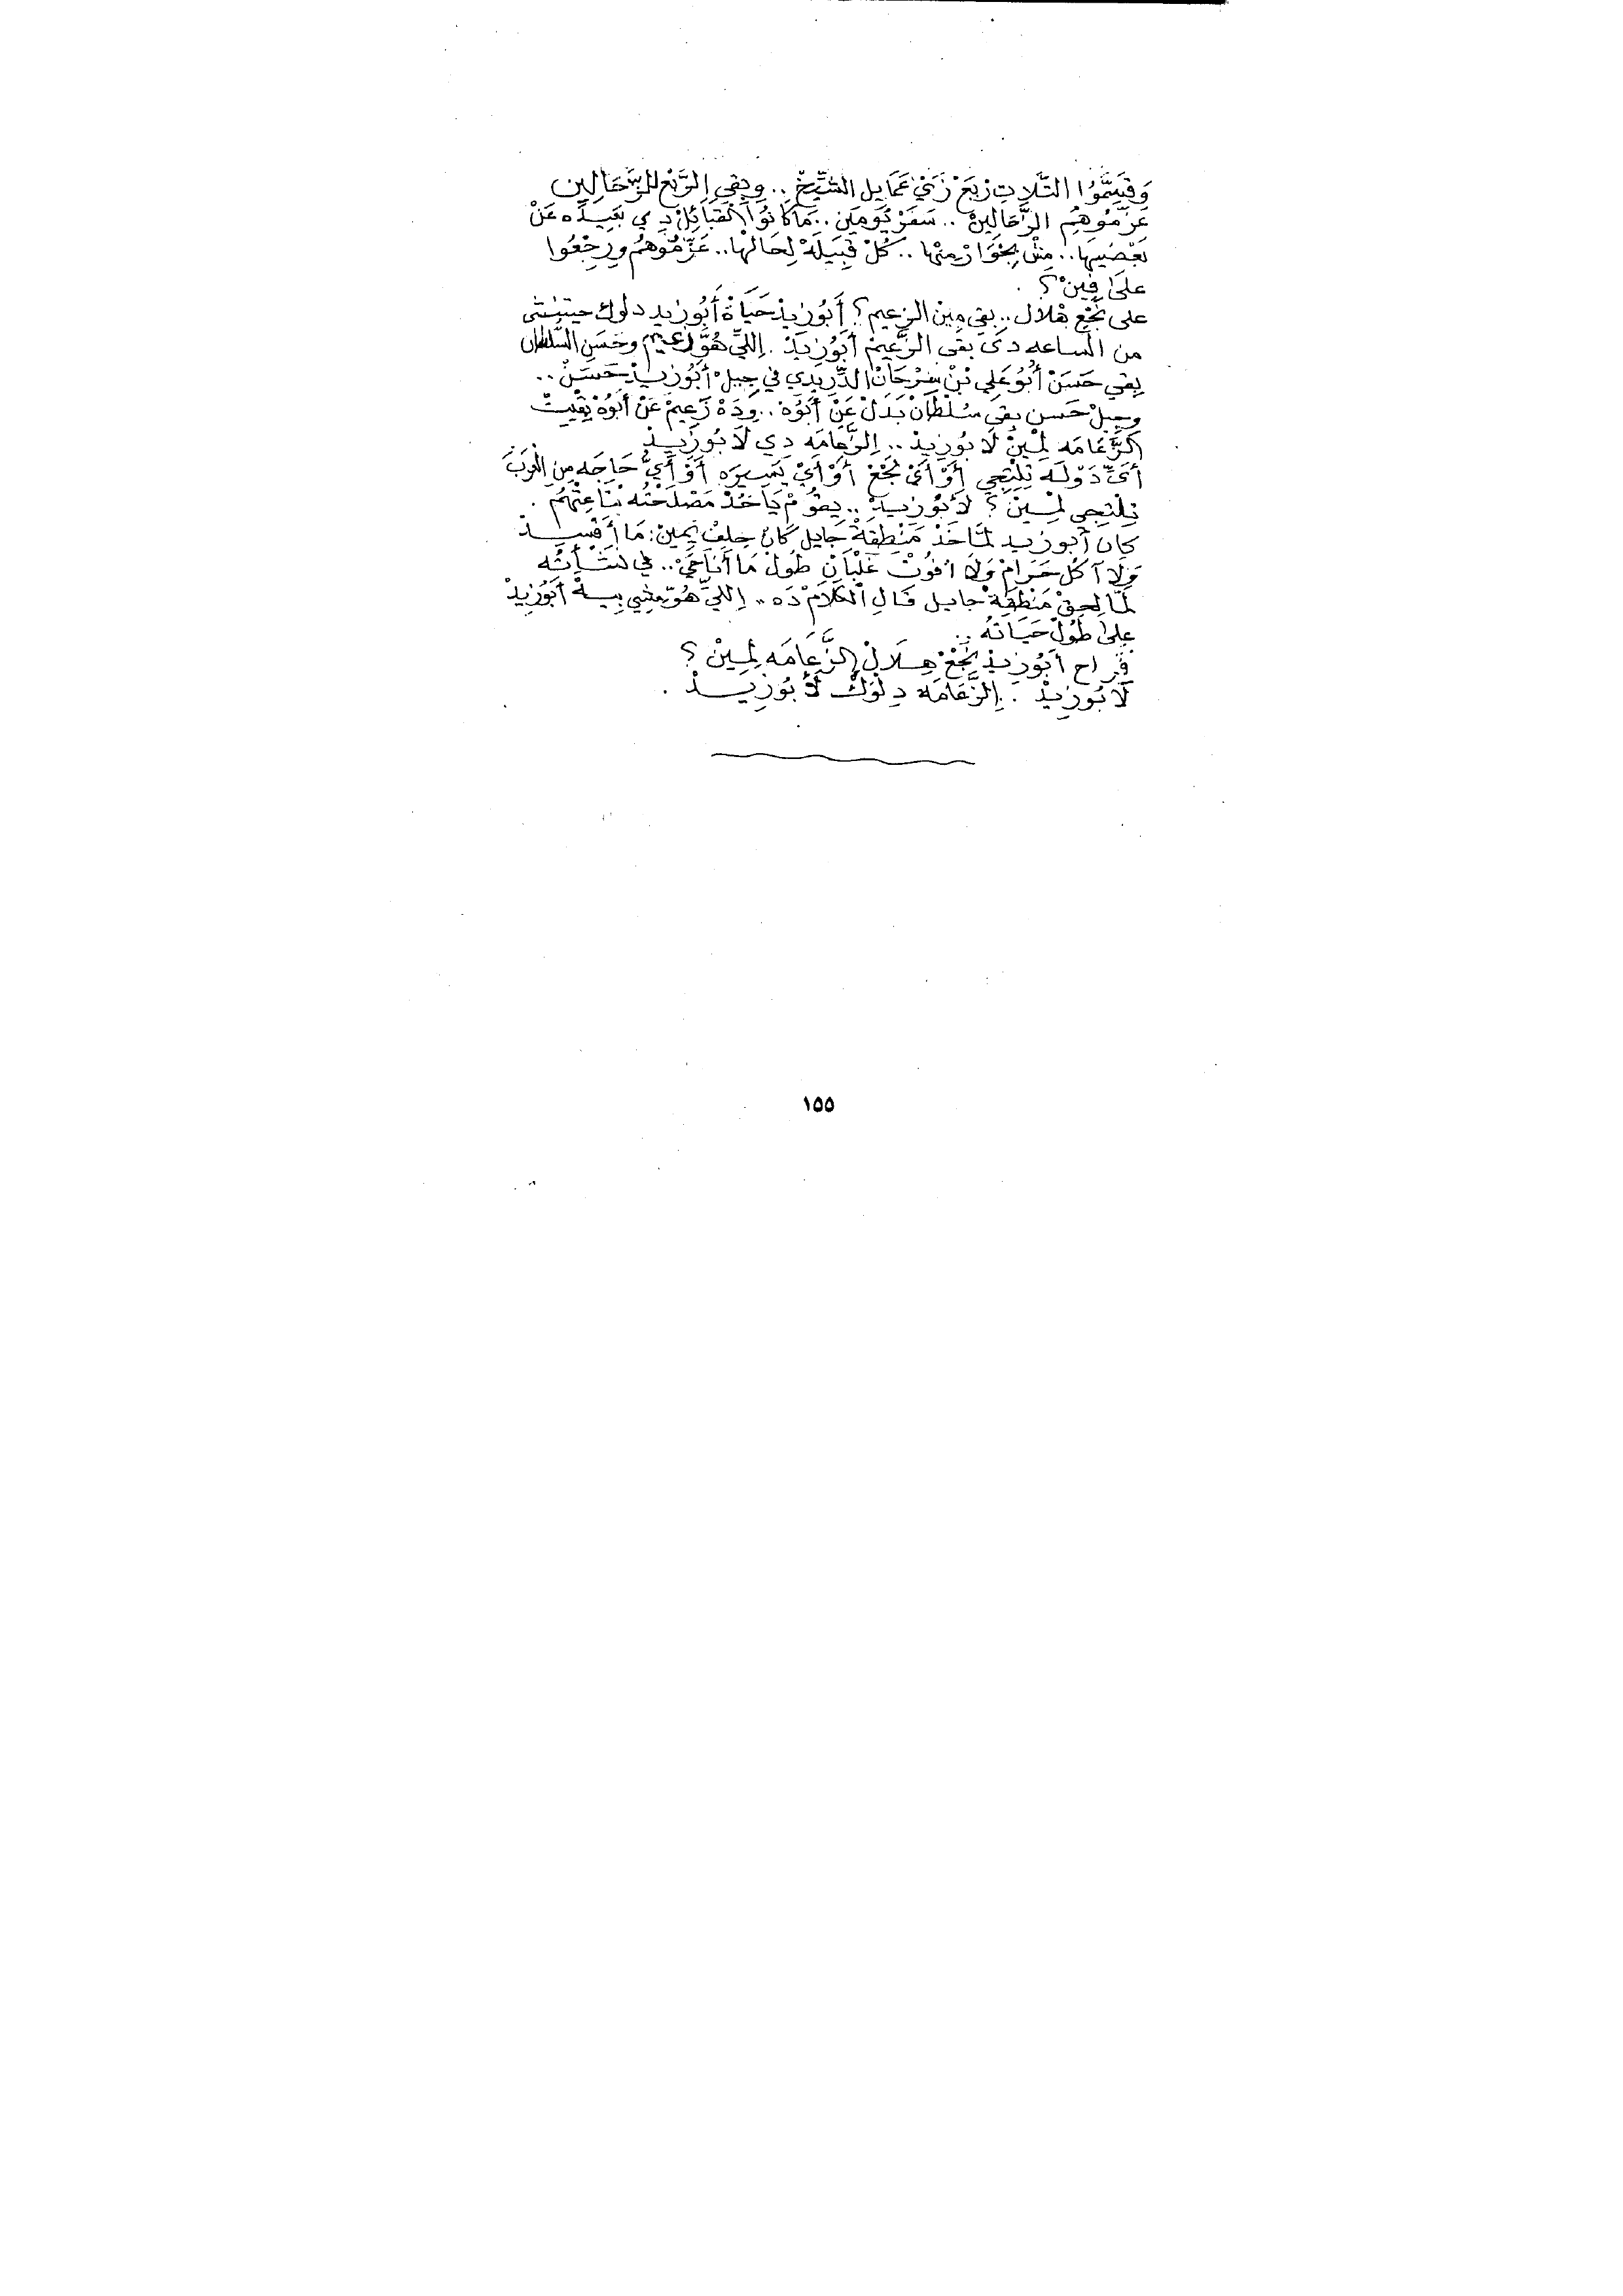 وَقَسِّمُوا التَّلاتِ رْبَعْ زَيّ عَمَايِل الشِّيخْ .. وِبِقِي الرَّبْع للرَّحَّالِين
عَزِّمُوهُم الرَّحَّالِينْ .. سَفَرْ يُومِين .. مَا كَانُوا القَبَائِلْ دِي بِعِيدَه عَنْ
بَعْضِيهَا .. مِشْ بِجْوَارْ مِنْهَا .. كُلْ قَبِيلَهْ لِحَالْهَا .. عَزِّمُوهُمْ ورِجْعُوا
علىَ فِينْ ؟
على نَجْعِ هْلال .. بقى مِين الزعيم ؟ أَبُو زِيدْ حَيَاةْ أَبُو زيد دلوك حيتنشى
من الساعه دى بقى الزَّعِيمْ أَبُو زِيدْ . إللِّي هُوَّ زعيم وحَسَنِ السُّلطان
بِقِي حَسَنْ أَبُو عَلِي بْنْ سَرْحَانْ الدِّرِيدِي في جِيلْ أَبُو زيدْ حَسَنْ ..
وجيلْ حَسن بقى سُلْطَانْ بَدَلْ عَنْ أَبُوهْ .. وِدَهْ زَعِيمْ عَنْ أَبُوهْ بِقْيِتْ
الزَّعَامَه لِمِينْ لَابُو زِيدْ .. إِلزَّعَامَه دِي لَابُو زِيدْ
أَىّ دَوْلَه تِلْتِجِي أَوْ أَىْ نَجْعْ أَوْ أَيْ يَسِيرَه أَوْ أَيّ حَاجَه مِنِ الْعَرَبْ
تِلْتجِي لِمِينْ ؟ لأَبُو زِيدْ .. يِقُومْ يَاخُدْ مَصْلَحْتُه بْتَاعِتْهُمْ .
كان أَبو زيد لَمَّا خَدْ مَنْطِقِةْ جَايل كَانْ حِلِفْ يِمِينْ : مَا أَفْسِدْ
وَلَا آكُل حَرَامْ وَلَا افُوتْ غَلْبَانْ طُولْ مَا أَنَا حَيّْ .. في نَشْأَتُه
لَمَّا لِحِقْ مَنْطِقِةْ جايل قَالِ الْكَلَامْ دَه .. إللِّي هُوّ مِشِي بِيهْ أَبُو زِيدْ
علىَ طُولْ حَيَاتُهْ ..
فَراح أَبُو زِيدْ نَجْعْ هِلَالْ إِلزَّعَامَه لِمِينْ ؟
لَابُو زِيدْ . إِلزَّعَامَه دِلْوَكْ لَابُو زِيدْ .
١٥٥